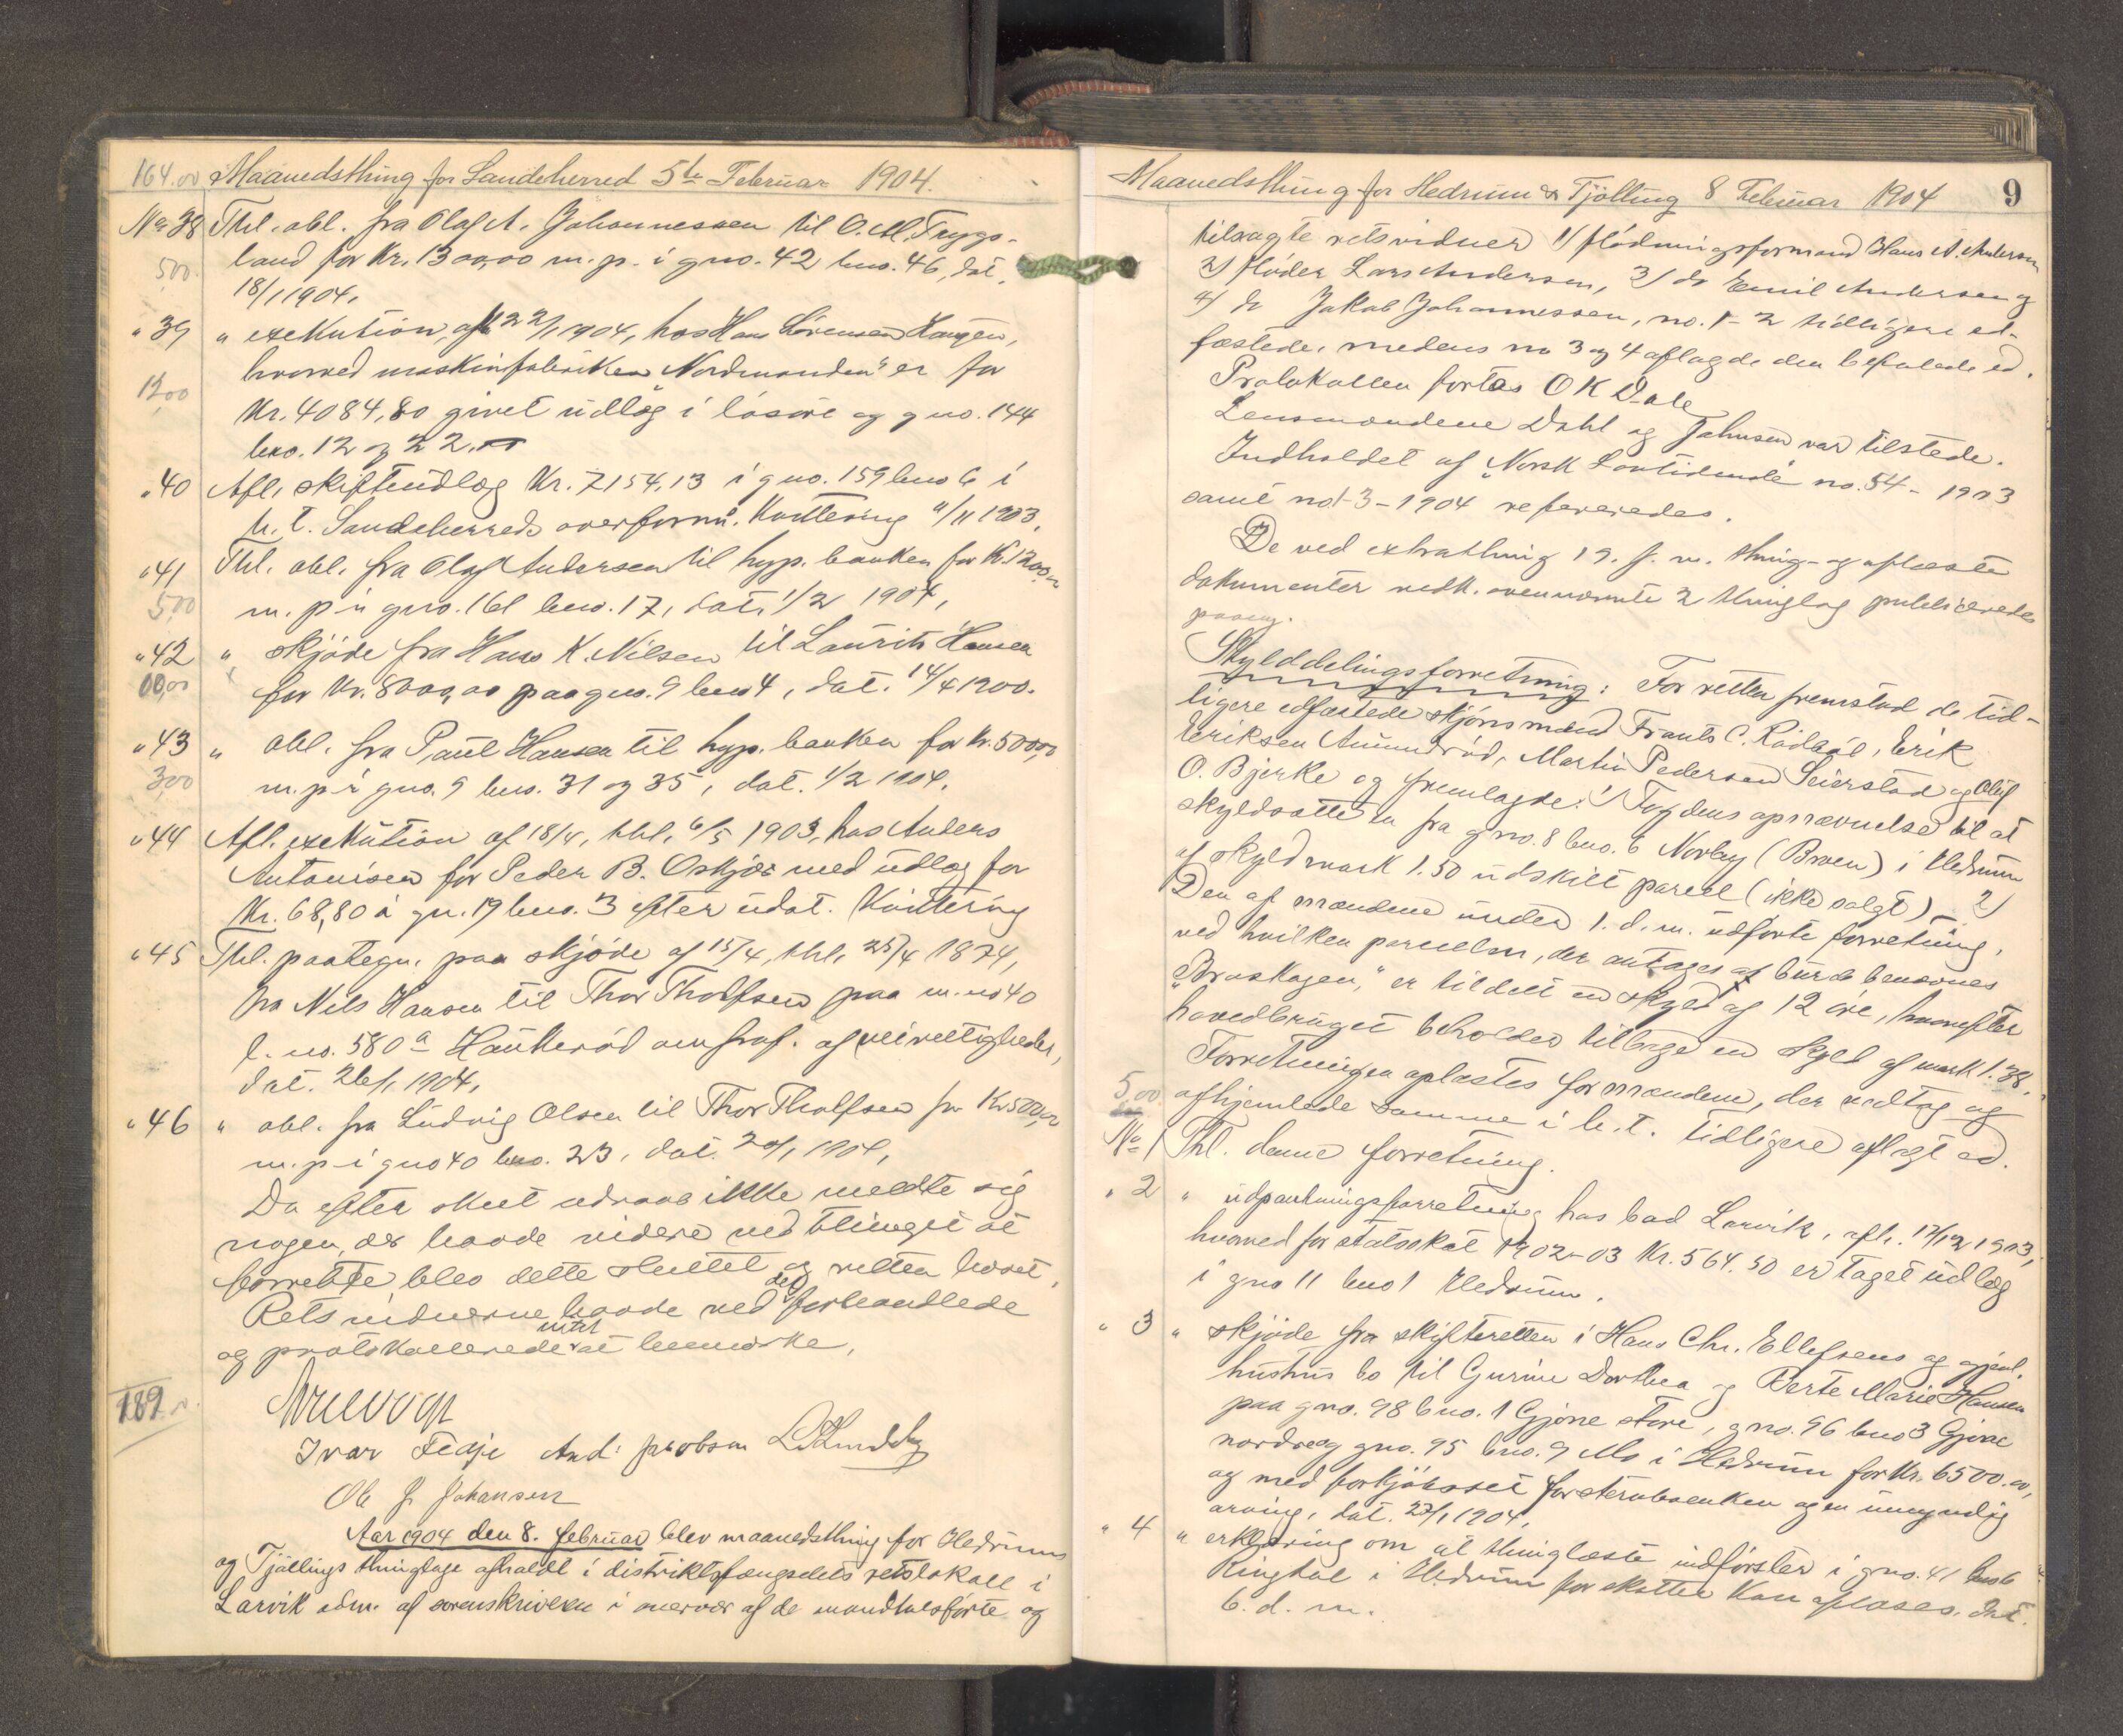 164.00 Maanedsthing for Sandeherred 5te Februar 1904.
No 38 Thl. obl. fra Olaf A. Johannessen til O. M. Trygs-
500. land for Kr. 1300,00 m. p. i gno. 42 bno. 46, dat.
18/1 1904.
" 39 " exekution, afh 22/1 1904, hos Hans Sørensen Haugen,
hvorved maskinfabriken "Nordmanden" er for
12,00 Kr. 4084,80 givet udlæg i løsøre og gno. 144
bno. 12 og 22.
" 40 Afl. skifteudlæg Kr. 7154,13 i gno. 159 bno 6 i
h. t. Sandeherreds overform. kvittering 11/11 1903.
" 41 Thl. obl. fra Olaf Andersen til hyp. banken for Kr. 1200,00
5,00 m. p. i gno. 161 bno. 17, dat. 1/2 1904,
" 42 " skjøde fra Hans K. Nilsen til Laurits Hansen
00,00 for Kr. 8000,00 paa gno. 9 bno 4, dat. 14/4 1900.
" 43 " obl. fra Paul Hansen til hyp. banken for Kr. 500,00
3,00 m. p. i gno. 9 bno. 31 og 35, dat. 1/2 1904.
" 44 Afl. exekution af 18/4, thl. 6/5 1903, hos Anders
Antonisen for Peder B. Oskjær med udlæg for
Kr. 68,80 i gn. 19 bno. 3 efter udat. kvittering
" 45 Thl. paategn. paa skjøde af 15/4, thl. 25/4 1874,
fra Nils Hansen til Thor Tholfsen paa m. no 40
l. no. 580a Haukerød om fraf. af veirettigheder,
dat. 26/1 1904,
" 46 " obl. fra Ludvig Olsen til Thor Tholfsen for Kr 500,00
m. p. i gno 40 bno. 23, dat. 20/1 1904,
Da efter skeet udraab ikke meldte sig
nogen, der havde videre ved thinget at
forrette, blev dette sluttet og retten hævet.
Retsvidnerne havde ved det forhandlede
og protokollerede intet at bemærke.
189
Ivar Fedje And: Jacobsen
Ole J. Johansen
Aar 1904 den 8. februar blev maanedsthing for Hedrums
og Tjøllings thinglage afholdt i distriktsfængslets retslokale i
Larvik adm. af sorenskriveren i overvær af de mandtalsførte og
Maanedsthing for Hedrum & Tjølling 8 Februar 1904 9
tilsagte retsvidner 1) flødningsformand Hans A. Andersen
2) fløder Lars Andersen, 3) do Emil Andersen og
4) do Jakob Johannessen, no. 1-2 tidligere ed-
fæstede, medens no 3 og 4 aflagde den befalede ed.
Protokollen førtes O K Dale
Lensmændene Dahl og Johnsen var tilstede.
Indholdet af "Norsk Lovtidende" no. 54 - 1903
samt no 1-3 - 1904 refereredes.
De ved extrathing 19. f. m. thing- og aflæste
dokumenter vedk. ovennævnte 2 thinglag publiceredes
paany.
Skylddelingsforretning: For retten fremstod de tid-
ligere edfæstede skjønsmænd Frants C. Rødbøl, Erik
Eriksen Amundrød, Martin Pedersen Seierstad og Oluf
O. Bjerke og fremlagde: 1) Fogdens opnævnelse til at
skyldsætte en fra gno. 8 bno. 6 Norby (Broen) i Hedrum
af skyldmark 1.50 udskilt parcel (ikke solgt) 2)
Den af mændene under 1. d. m. udførte forretning,
ved hvilken parcellen, der antages at burde benævnes
"Broskogen," er tildelt en skyld af 12 øre, hvorefter
hovedbruget beholder tilbage en skyld af mark 1.38.
Forretningen oplæstes for mændene, der vedtog og
5,00 afhjemlede samme i h. t. tidligere aflagt ed.
No 1 Thl. denne forretning.
" 2 " udpantningsforretning hos bad Larvik, afh. 17/12 1903,
hvorved for statsskat 1902-03 Kr. 564.50 er taget udlæg
i gno 11 bno 1 Hedrum.
" 3 " skjøde fra skifteretten i Hans Chr. Ellefsens og gjenl.
hustrus bo til Gurine Dorthea og Berte Marie Hansen
paa gno. 98 bno. 1 Gjone store, gno. 96 bno 3 Gjone
nordre og gno. 95 bno. 9 Mo i Hedrum for Kr. 6500.00,
og med forkjøbsret for sterboenken og en umyndig
arving, dat. 27/1 1904.
" 4 " erklæring om at thinglæste indførsler i gno. 41 bno 6
Ringdal i Hedrum for skatter kan aflæses. dat.
6. d. m.